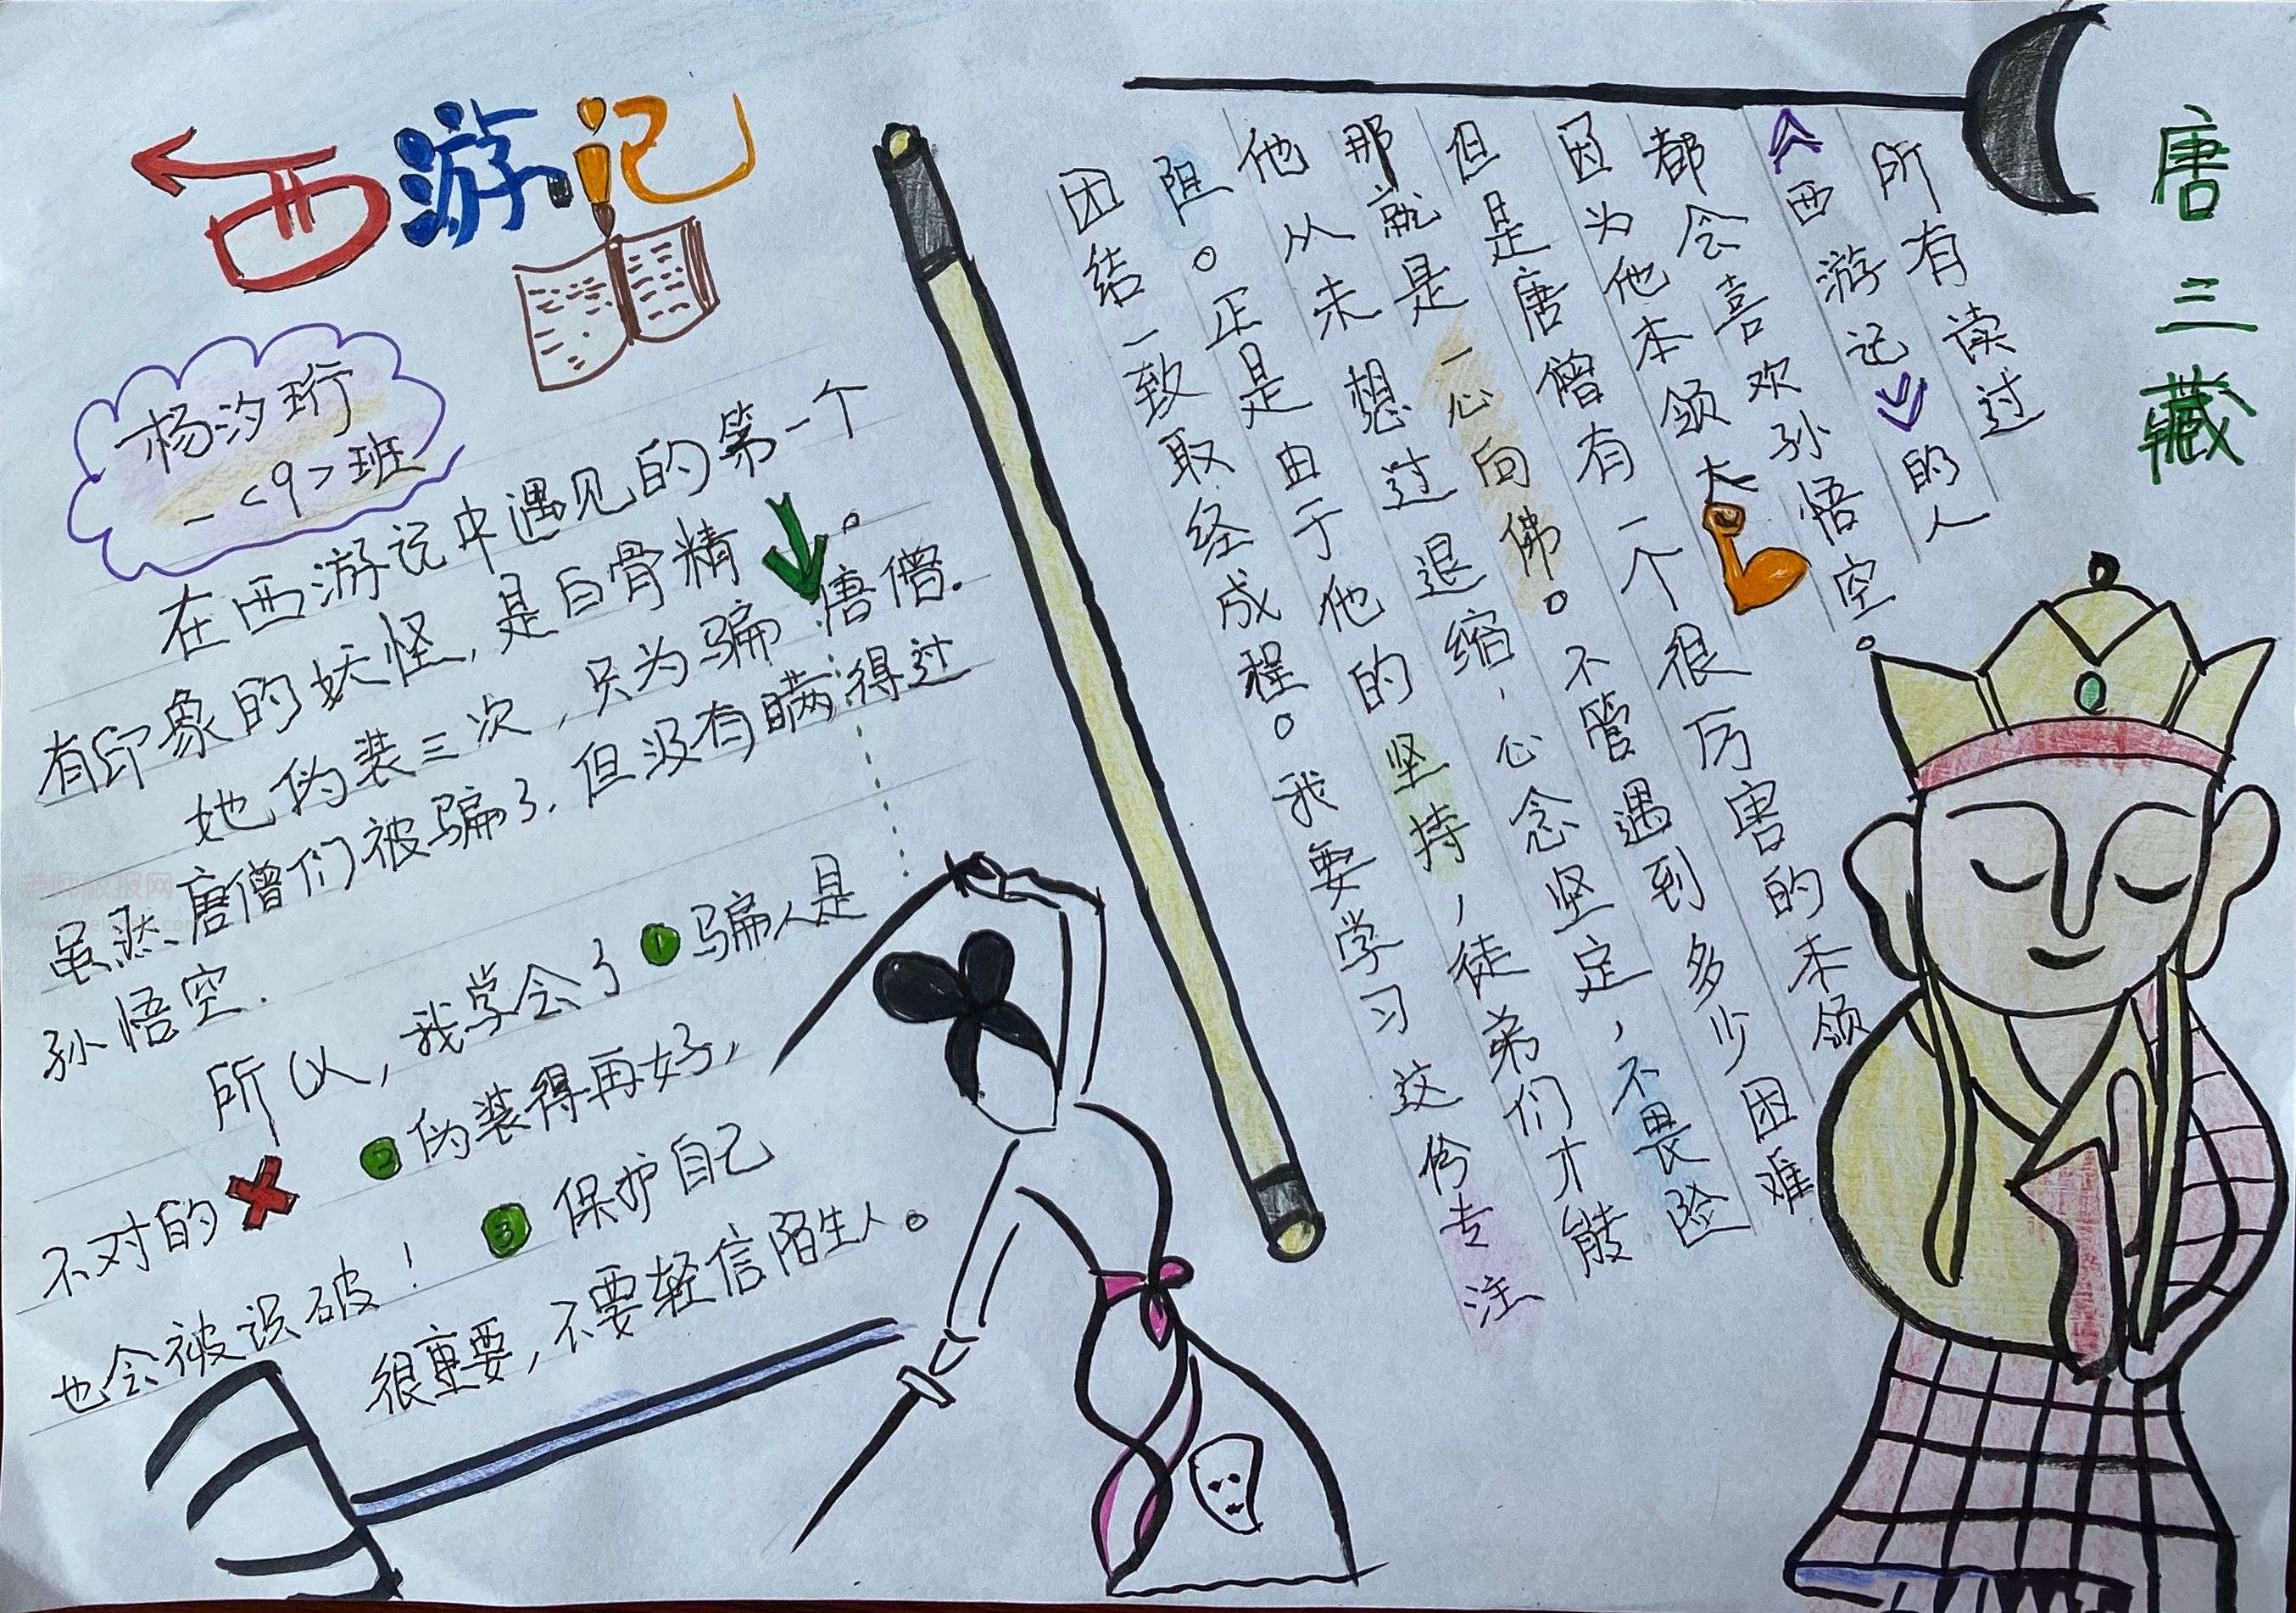 西游记
杨汐珩
一<9>班
在西游记中遇见的第一个
有印象的妖怪,是白骨精。
她伪装三次,只为骗唐僧.
虽然唐僧们被骗了.但没有瞒得过
孙悟空.
所以,我学会了1骗人是
不对的 2伪装得再好,
也会被识破! 3保护自己
很重要,不要轻信陌生人。
唐三藏
所有读过
《西游记》的人
都会喜欢孙悟空。
因为他本领大
但是唐僧有一个很厉害的本领
那就是一心向佛。不管遇到多少困难
他从未想过退缩,心念坚定,不畏险
阻。正是由于他的坚持,徒弟们才能
团结一致取经成程。我要学习这份专注
老师板报网